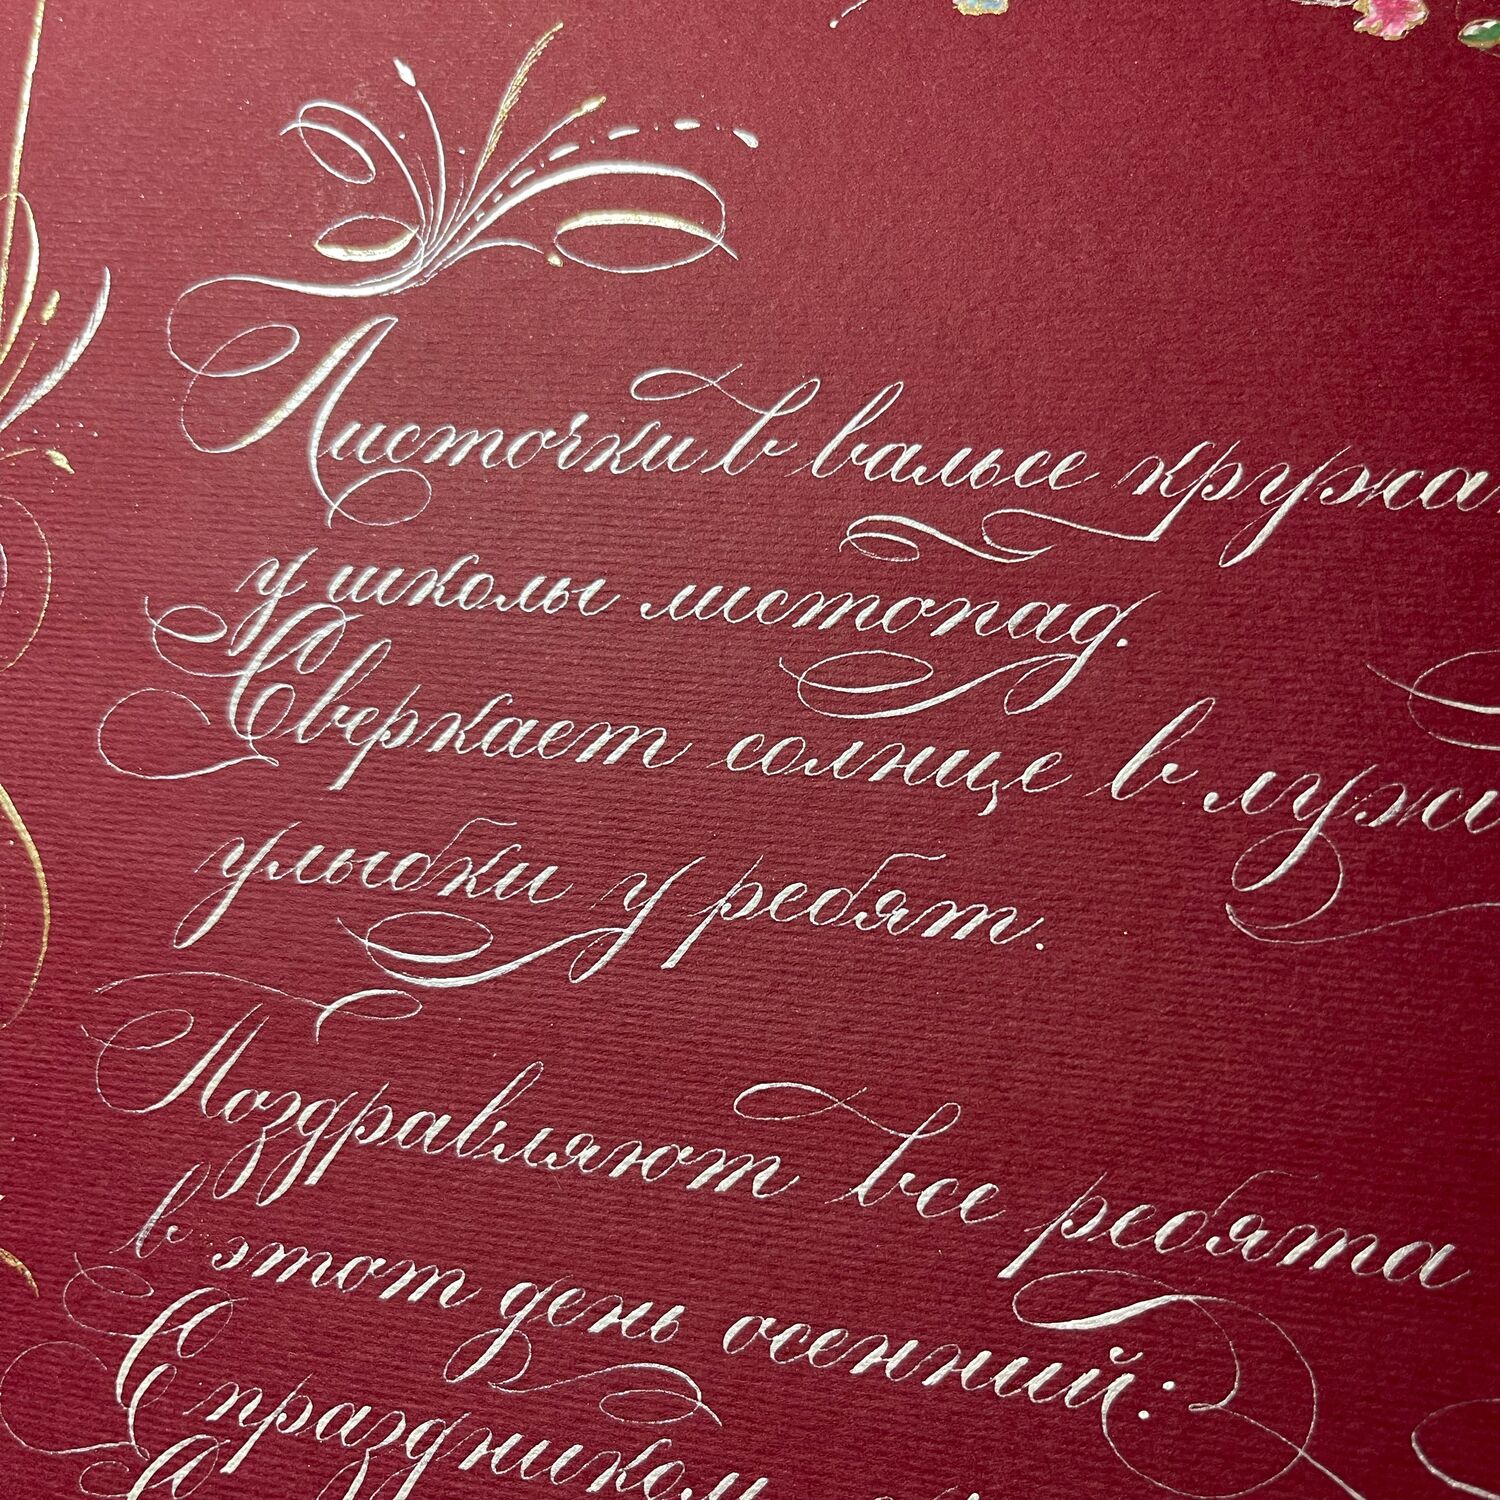 Листочки в вальсе кружа
у школы листопад.
Сверкает солнце в луж
улыбки у ребят.
Поздравляют все ребята
в этот день осенний:
С праздником